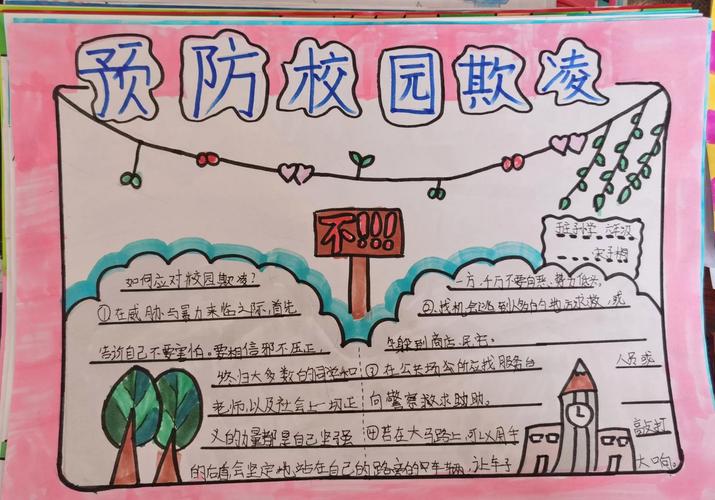 预防校园欺凌
不!!!
小学 六年级
如何应对校园欺凌?
①在威胁与暴力来临之际,首先
告诉自己不要害怕。要相信邪不压正,
终归大多数的同学和
老师,以及社会上一切正
义的力量都是自己坚强
的后盾会坚定地站在自己的
一方,千万不要
②找机会逃到人多的地方求救,或
躲到商店、民宅。
③在公共场合应找服务台
人员或
向警察救求助助。
④若在大马路上,可以用手
高点打
车辆,让车子
大